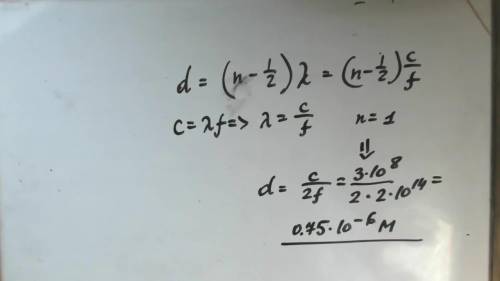 d = (n - 1/2) λ = (n - 1/2) c/f
c = λf => λ = c/f n = 1
⇓
d = c/2f = 3·10^8 / 2·2·10^14 =
0.75·10^-6 м